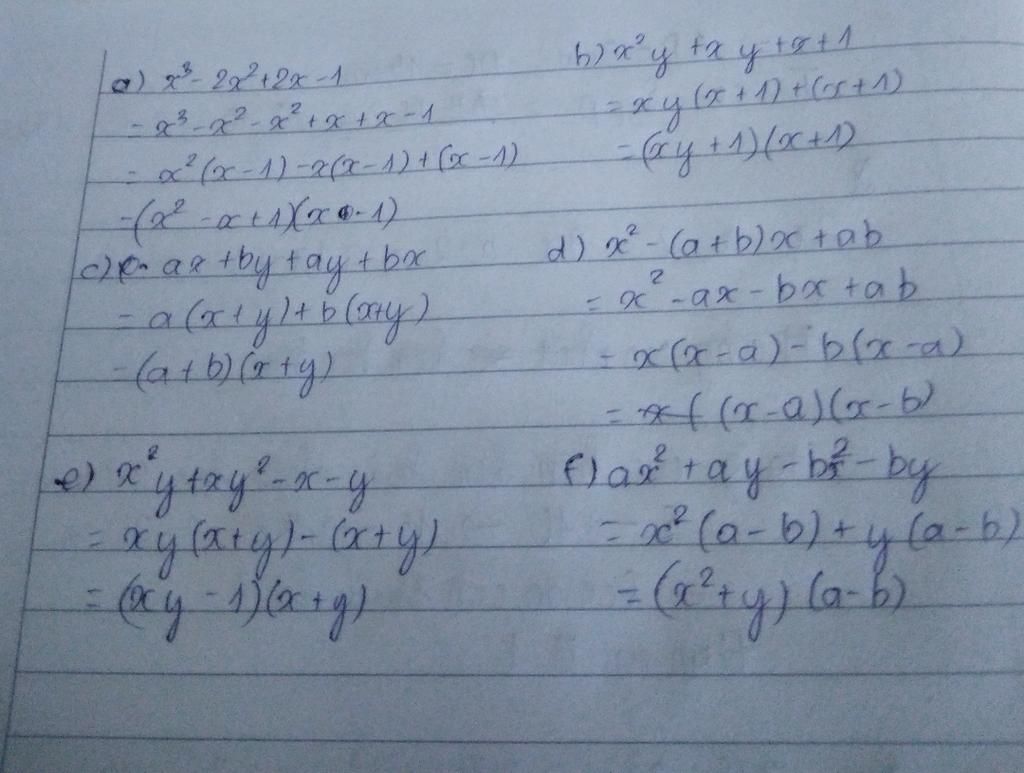 a) x³ - 2x² + 2x - 1
= x³ - x² - x² + x + x - 1
= x²(x - 1) - x(x - 1) + (x - 1)
= (x² - x + 1)(x - 1)
b) x²y + xy + x + 1
= xy(x + 1) + (x + 1)
= (xy + 1)(x + 1)
c) ax + by + ay + bx
= a(x + y) + b(x+y)
= (a + b)(x + y)
d) x² - (a + b)x + ab
= x² - ax - bx + ab
= x(x - a) - b(x - a)
= (x - a)(x - b)
e) x²y + xy² - x - y
= xy(x + y) - (x + y)
= (xy - 1)(x + y)
f) ax² + ay - bx² - by
= x²(a - b) + y(a - b)
= (x² + y)(a - b)